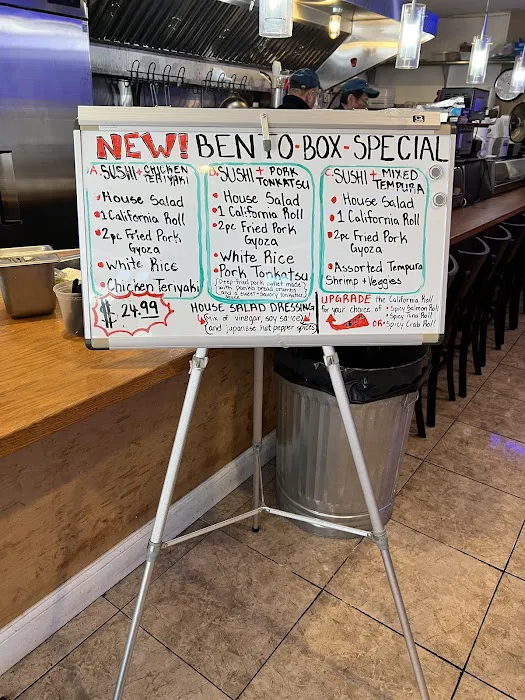 NEW! BENTO-BOX-SPECIAL
A. SUSHI + CHICKEN
TERIYAKI
House Salad
1 California Roll
2pc Fried Pork
Gyoza
White Rice
Chicken Teriyaki
$ 24.99
B. SUSHI + PORK
TONKATSU
House Salad
1 California Roll
2pc Fried Pork
Gyoza
White Rice
Pork Tonkatsu
(Deep-fried pork cutlet made
with panko bread crumbs
and a sweet-savory tonkatsu)
C. SUSHI + MIXED
TEMPURA
House Salad
1 California Roll
2pc Fried Pork
Gyoza
Assorted Tempura
Shrimp + Veggies
HOUSE SALAD DRESSING
(Mix of vinegar, soy sauce
and japanese hot pepper spices)
UPGRADE the California Roll
for your choice of • Spicy Salmon Roll
• Spicy Tuna Roll
OR • Spicy Crab Roll